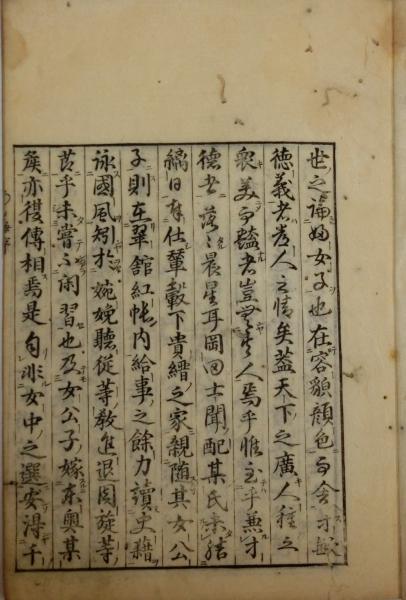 世之論婦女子也在容貌顔色而舍才與
德義者眾人之情矣蓋天下之廣人種之
衆美而豔者豈無其人焉乎惟至乎兼才
德者落〻晨星耳岡田士聞配某氏未結
縭日在仕輦轂下貴縉之家親隨其女公
子則在翠舘紅帳内給事之餘力讀史籍
咏國風矧於婉娩聽從等教進退周旋等
苦乎未嘗不閑習也及女公子嫁東奥某
侯亦復傳相焉是自非女中之選安得千